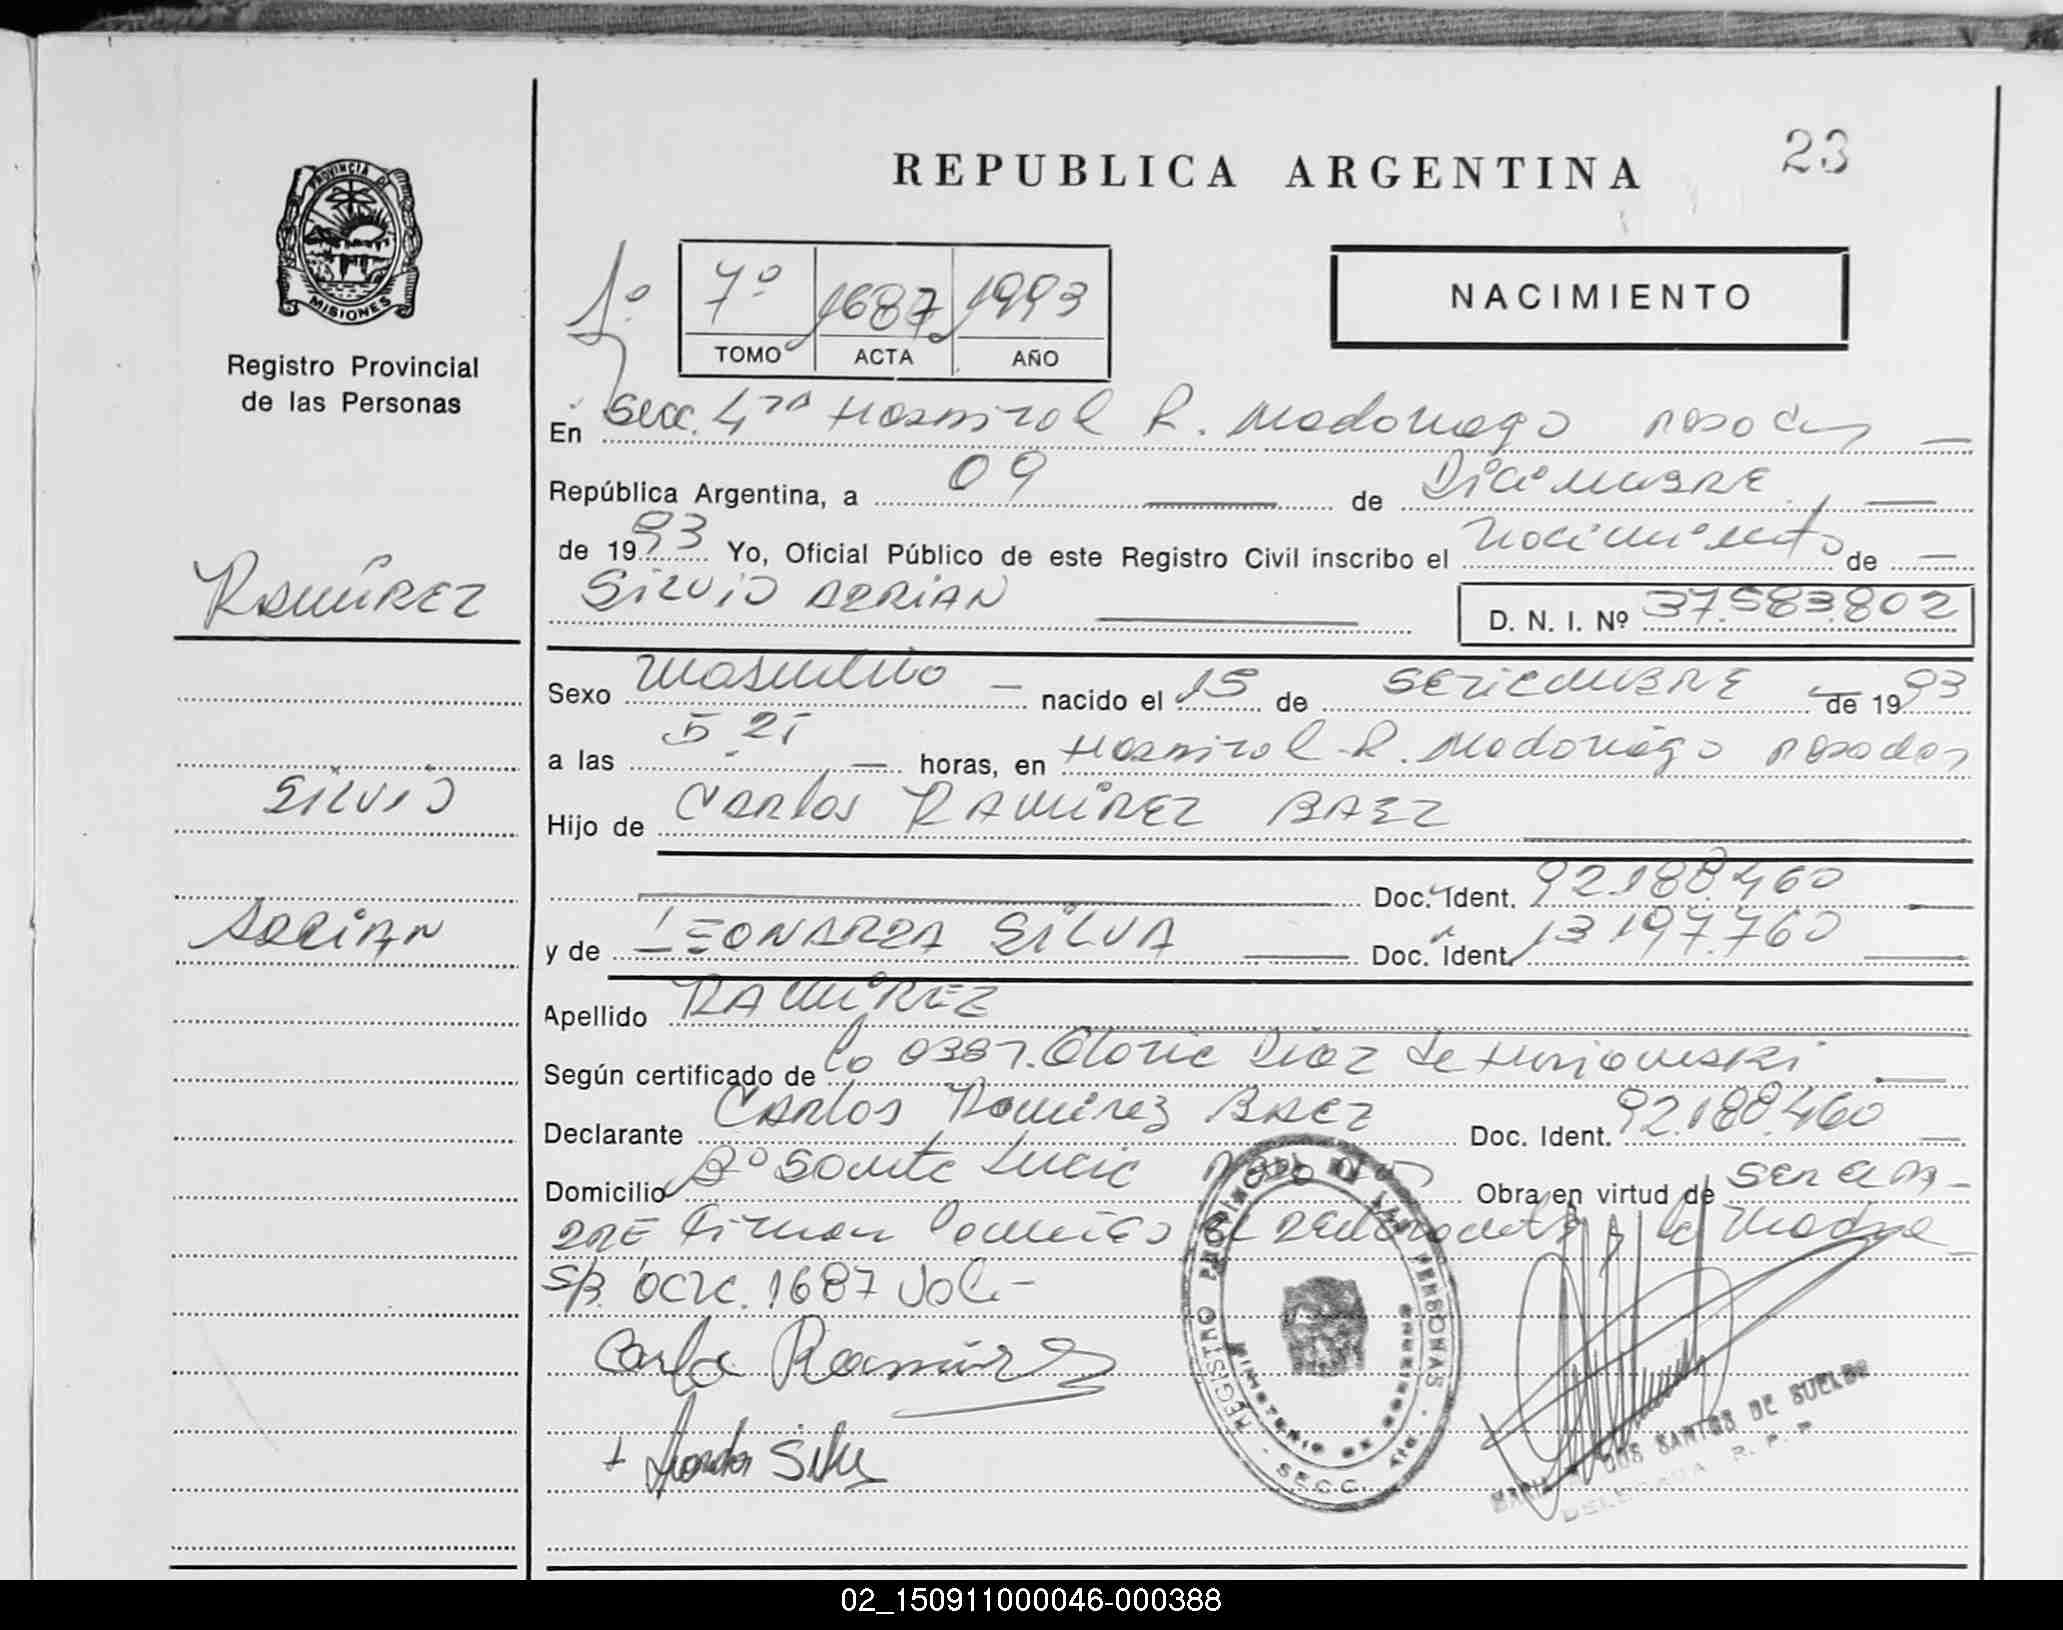 REPUBLICA ARGENTINA
23
PROVINCIA DE
MISIONES
Registro Provincial
de las Personas
1º
7º 1687 1993
TOMO ACTA AÑO
NACIMIENTO
En Secc. 4ta Hospital R. Madariaga Posadas
República Argentina, a 09 de Diciembre
de 1993 Yo, Oficial Público de este Registro Civil inscribo el nacimiento de
RAMÍREZ
SILVIO ADRIAN
D. N. I. Nº 37.583.802
Sexo masculino nacido el 15 de SETIEMBRE de 1993
a las 5.25 horas, en Hospital R. Madariaga Posadas
SILVIO
Hijo de Carlos RAMÍREZ BAEZ
Doc. Ident. 92.188.460
ADRIAN
y de LEONARDA SILVA Doc. Ident. 13.197.760
Apellido RAMÍREZ
Según certificado de la obst. Gloria Diaz de
Declarante Carlos Ramirez BAEZ Doc. Ident. 92.188.460
Domicilio Bº Santa Lucia Posadas Obra en virtud de ser el pa-
dre Firman conmigo el declarante y la madre
S/B. acta. 1687 Vale.-
Carlos Ramírez
+ Leonarda Silva
REGISTRO PROVINCIAL DE LAS PERSONAS
MINISTERIO DE GOBIERNO
SECC. 4ta.
DOS SANTOS DE SUELDO
DELEGADA R. P. P.
02_150911000046-000388